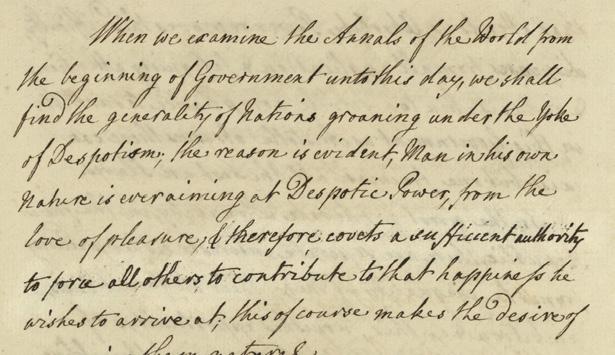 When we examine the Annals of the World from
the beginning of Government unto this day, we shall
find the generality of Nations groaning under the Yoke
of Despotism; the reason is evident, Man in his own
Nature is ever aiming at Despotic Power, from the
love of pleasure, & therefore covets a sufficient authority
to force all others to contribute to that happiness he
wishes to arrive at; this of course makes the desire of